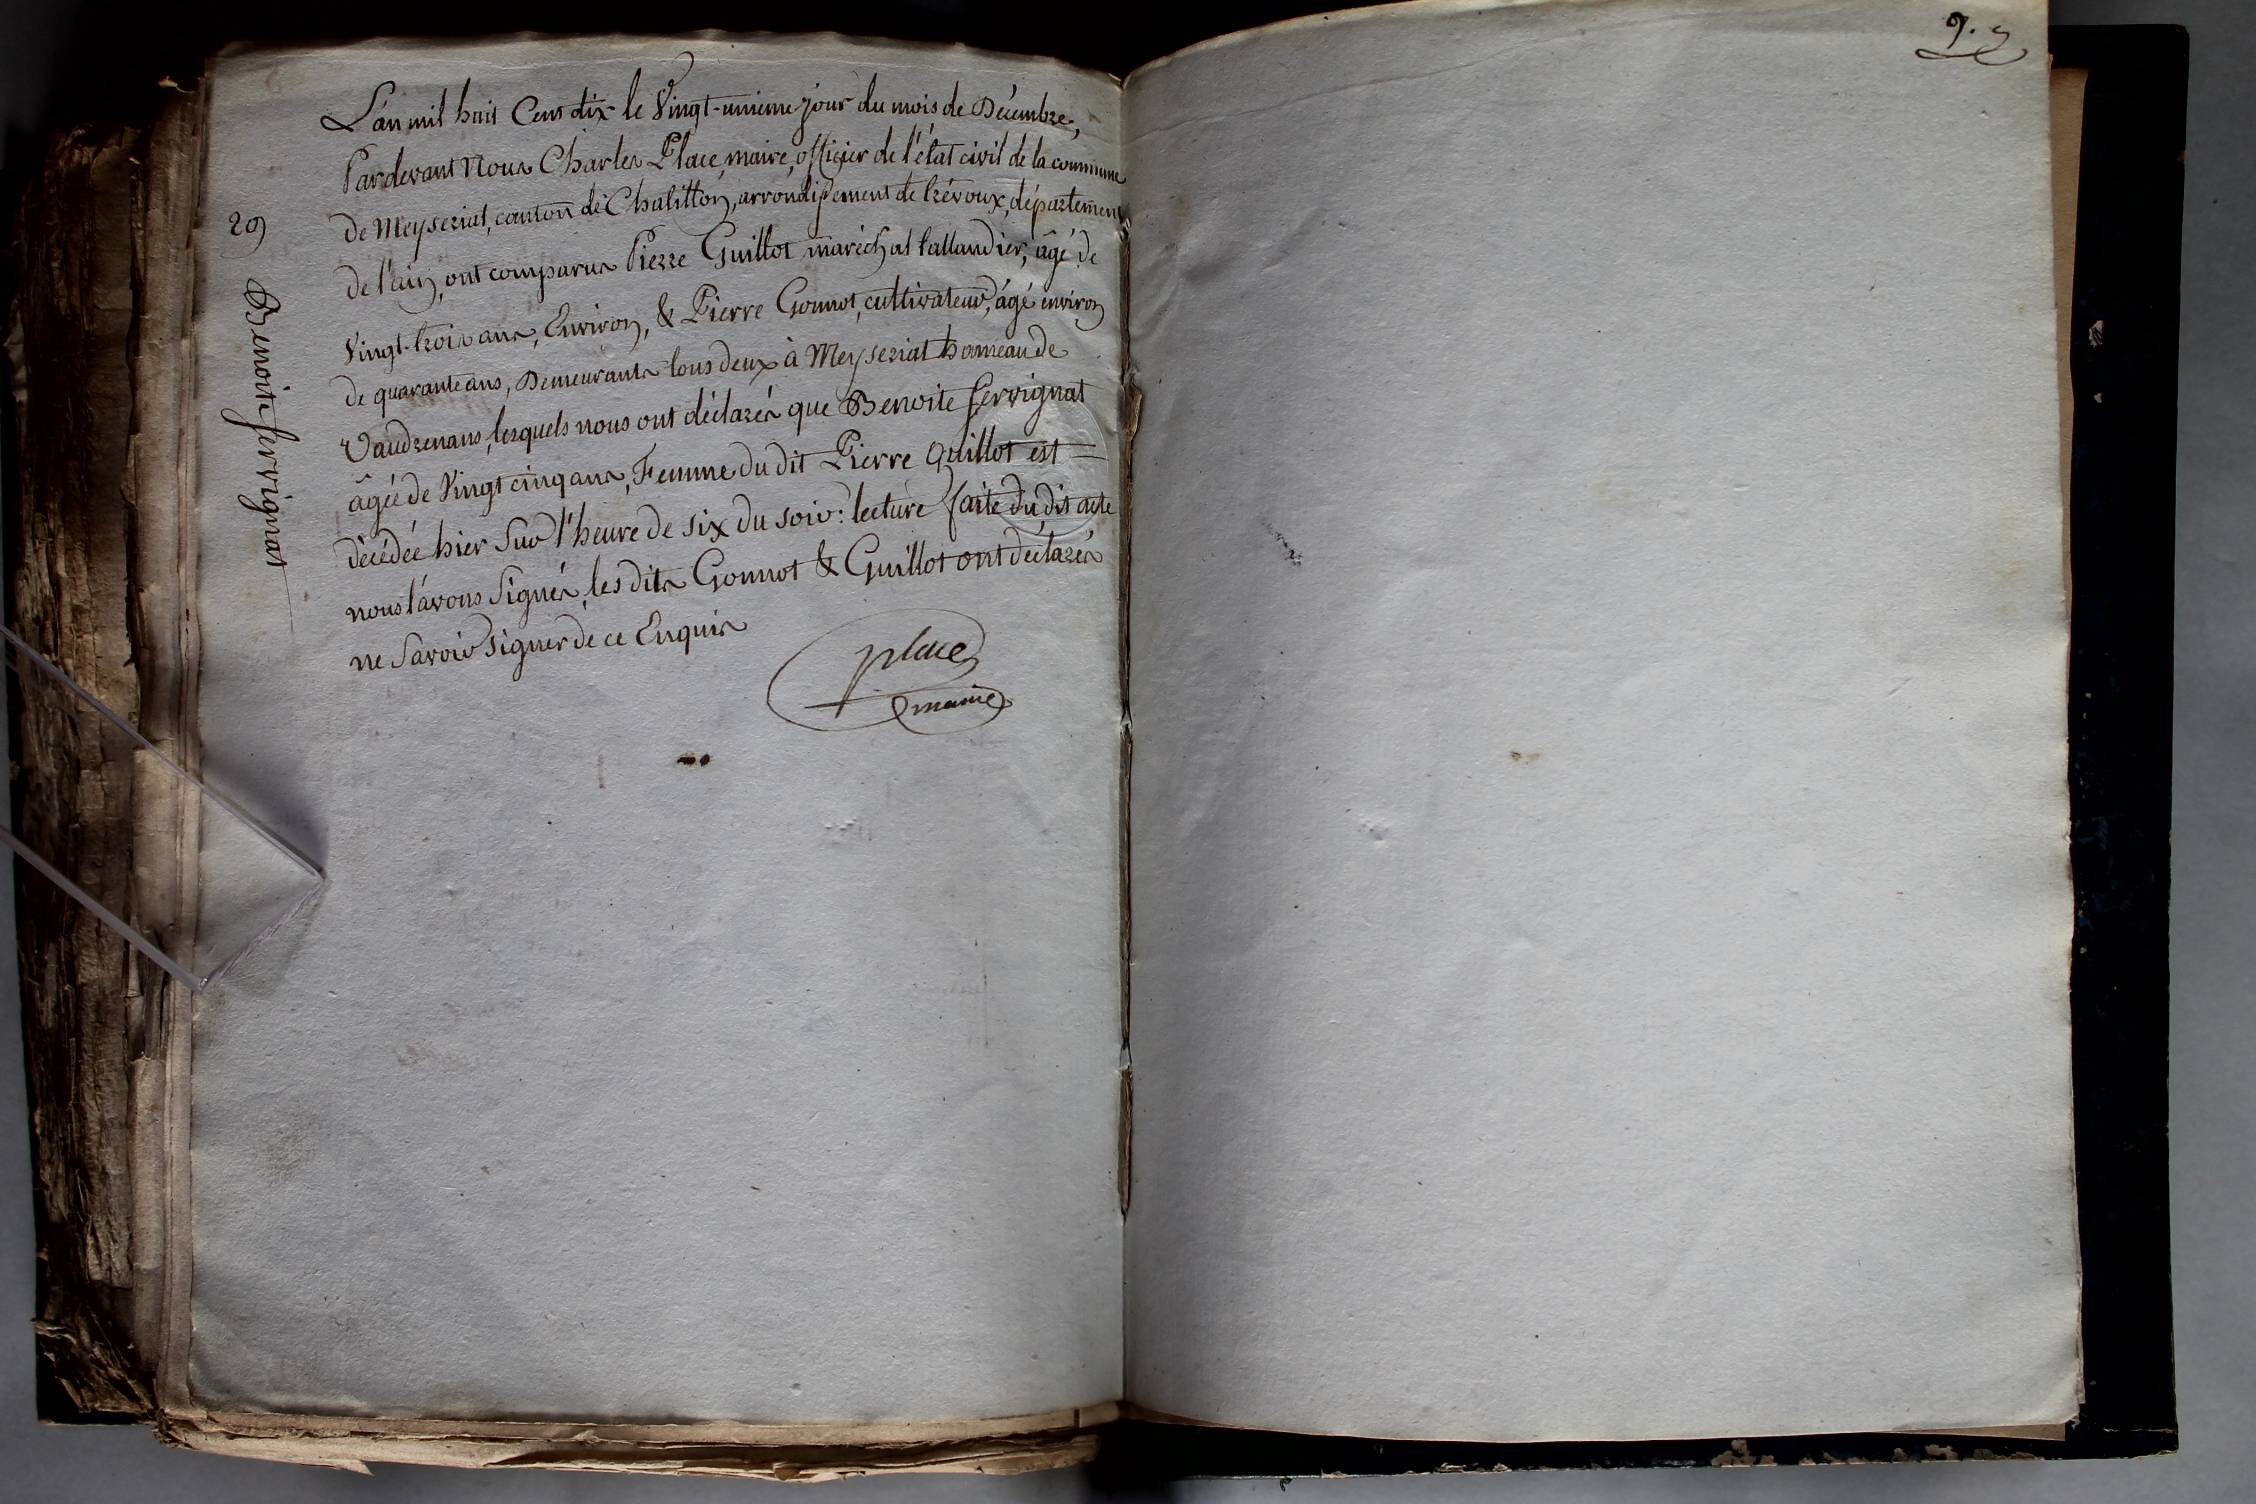 L'an mil huit Cent dix le Vingt-unieme jour du mois de Décembre,
Pardevant Nous Charles Place, maire, officier de l'état civil de la commune
de Meyseriat, canton de Chalitton, arrondissement de trévoux, département
de l'ain, ont comparus Pierre Guillot maréchal tallandier, âgé de
Vingt-trois ans, Environ, & Pierre Gonnot, cultivateur, âgé environ
de quarante ans, Demeurants tous deux à Meyseriat hameau de
Vaudrenans, lesquels nous ont déclarés que Benoite ferrignat
âgée de Vingt cinq ans, Femme du dit Pierre Guillot est
décédée hier Sur l'heure de six du soir : lecture faite du dit acte
nous l'avons Signés, les dits Gonnot & Guillot ont déclarés
ne Savoir Signer de ce Enquis
place
maire
29
Benoite ferrignat